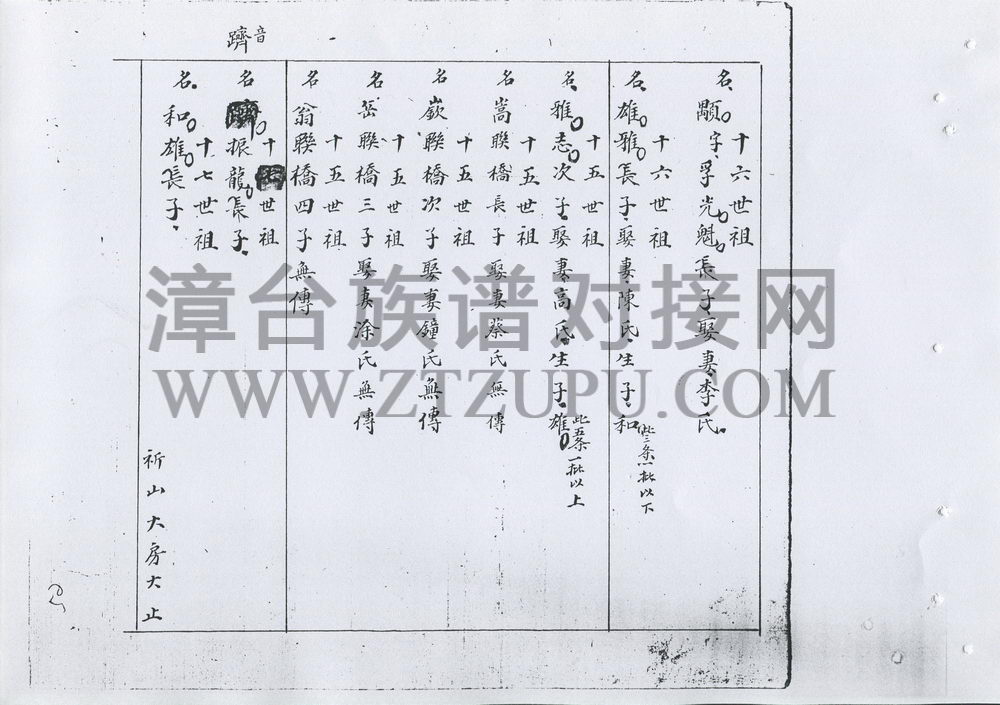 十六世祖
名顒字孚光魁長子娶妻李氏
十六世祖
名雄雅長子娶妻陳氏生子和
此三条一批以下
十五世祖
名雅志次子娶妻高氏生子雄
此五条一批以上
十五世祖
名嵩聯橋長子娶妻蔡氏無傳
十五世祖
名嶔聯橋次子娶妻鐘氏無傳
十五世祖
名岳聯橋三子娶妻涂氏無傳
十五世祖
名翁聯橋四子無傳
音
躋
十世祖
名振龍長子
十七世祖
名和雄長子
祈山大房大止
漳台族谱对接网
WWW.ZTZUPU.COM